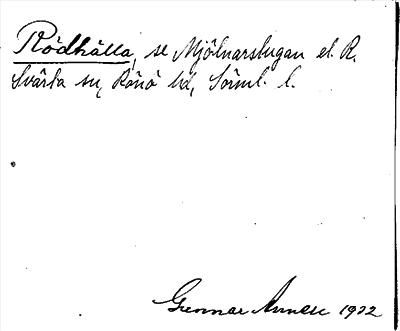 Rödhälla, se Mjölnarstugan el. R.
Svärta sn, Rönö hd, Sörml. l.
Gunnar 1922